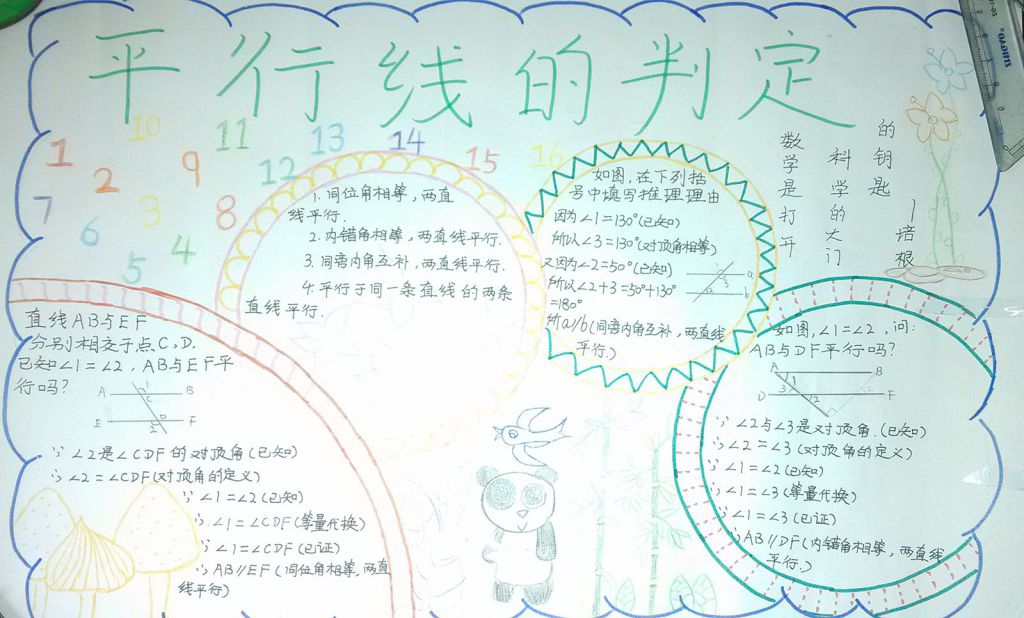 平行线的判定
1
2
3
4
5
6
7
8
9
10
11
12
13
14
15
16
数学是打开
科学的大门
的钥匙
—培根
1. 同位角相等，两直
线平行.
2. 内错角相等，两直线平行.
3. 同旁内角互补，两直线平行.
4. 平行于同一条直线的两条
直线平行.
如图，在下列括
号中填写推理理由
因为∠1=130°(已知)
所以∠3=130°(对顶角相等)
又因为∠2=50°(已知)
所以∠2+3=50°+130°
=180°
所a//b(同旁内角互补，两直线
平行.)
a
b
1
2
3
直线AB与EF
分别相交于点C,D.
已知∠1=∠2，AB与EF平
行吗?
A
B
1
C
E
D
F
2
∵∠2是∠CDF的对顶角(已知)
∴∠2=∠CDF(对顶角的定义)
∵∠1=∠2(已知)
∴∠1=∠CDF(等量代换)
∵∠1=∠CDF(已证)
∴AB//EF(同位角相等，两直
线平行)
如图，∠1=∠2，问：
AB与DF平行吗?
A
B
1
3
D
2
F
∵∠2与∠3是对顶角.(已知)
∴∠2=∠3(对顶角的定义)
∵∠1=∠2(已知)
∴∠1=∠3(等量代换)
∵∠1=∠3(已证)
∴AB//DF(内错角相等，两直线
平行.)